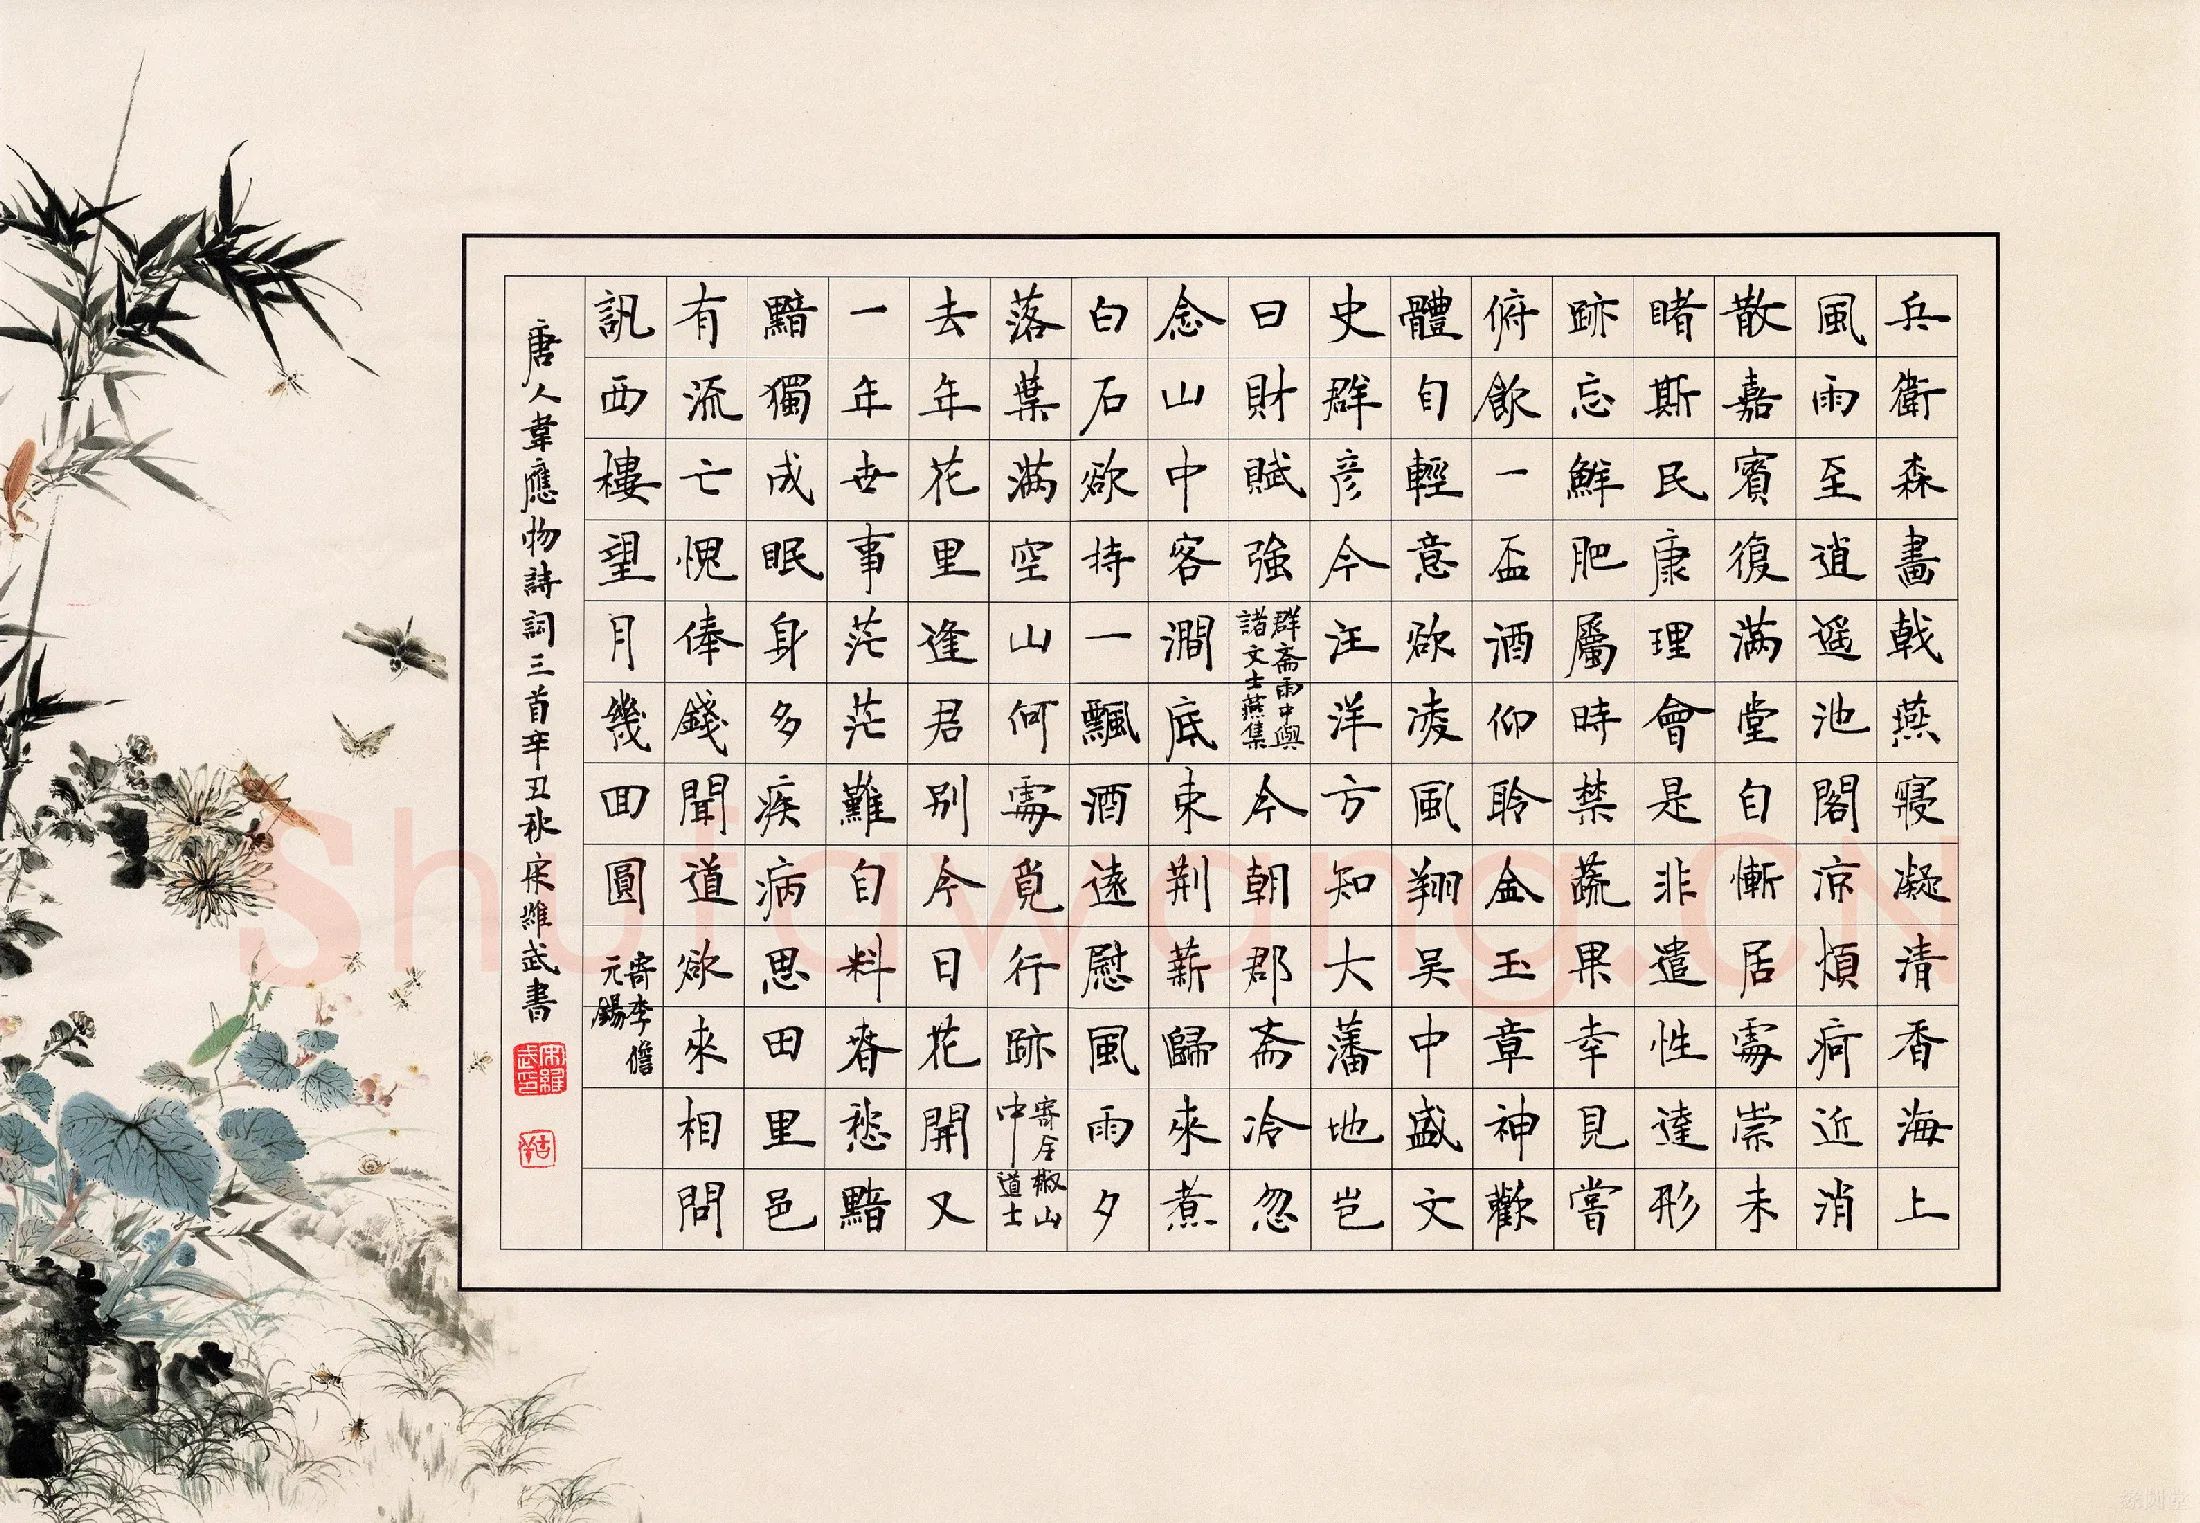 兵衛森畫戟燕寢凝清香海上
風雨至逍遥池閣涼煩疴近消
散嘉賓復满堂自慚居處崇未
睹斯民康理會是非遣性達形
跡忘鮮肥屬時禁蔬果幸見嘗
俯飲一盃酒仰聆金玉章神歡
體自輕意欲凌風翔吴中盛文
史群彦今汪洋方知大藩地豈
曰財賦強 群斋雨中與諸文士燕集 今朝郡斋冷忽
念山中客澗底束荆薪歸來煮
白石欲持一飄酒遠慰風雨夕
落葉满空山何處覓行跡 寄全椒山中道士
去年花里逢君别今日花開又
一年世事茫茫難自料春愁黯
黯獨成眠身多疾病思田里邑
有流亡愧俸錢聞道欲來相問
訊西樓望月幾回圓 寄李儋元錫
唐人韋應物詩詞三首辛丑秋宋維武書
宋維武印
Shufawang.CN